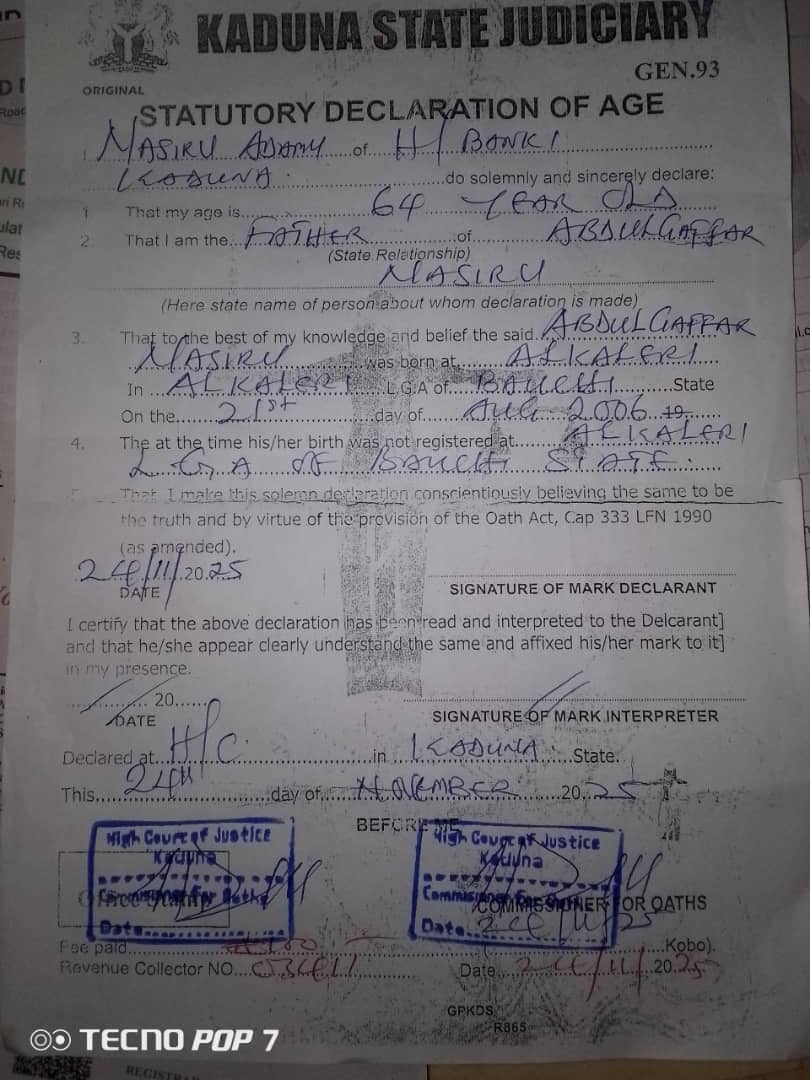 KADUNA STATE JUDICIARY
GEN.93
ORIGINAL
STATUTORY DECLARATION OF AGE
I NASIRU ADAMU of H/ BANKI
KADUNA. do solemnly and sincerely declare:
1. That my age is 64 YEAR OLD
2. That I am the FATHER of ABDULGAFFAR
(State Relationship)
NASIRU
(Here state name of person about whom declaration is made)
3. That to the best of my knowledge and belief the said ABDULGAFFAR
NASIRU was born at ALKALERI
In ALKALERI L.G.A of BAUCHI State
On the 21st day of AUG 2006 19
4. The at the time his/her birth was not registered at ALKALERI
L.G.A OF BAUCHI STATE.
5. That I make this solemn declaration conscientiously believing the same to be
the truth and by virtue of the provision of the Oath Act, Cap 333 LFN 1990
(as amended).
24/11/2025
DATE
SIGNATURE OF MARK DECLARANT
I certify that the above declaration has been read and interpreted to the Delcarant]
and that he/she appear clearly understand the same and affixed his/her mark to it]
in my presence.
20
DATE
SIGNATURE OF MARK INTERPRETER
Declared at H/C. in KADUNA. State.
This 24th day of NOVEMBER 2025
BEFORE ME
High Court of Justice
Kaduna
Commissioner for Oaths
Date
High Court of Justice
Kaduna
Date 24/11/25
COMMISSIONER FOR OATHS
Fee paid Kobo).
Revenue Collector NO. Date 24/11/2025
GPKDS
R865
TECNO POP 7